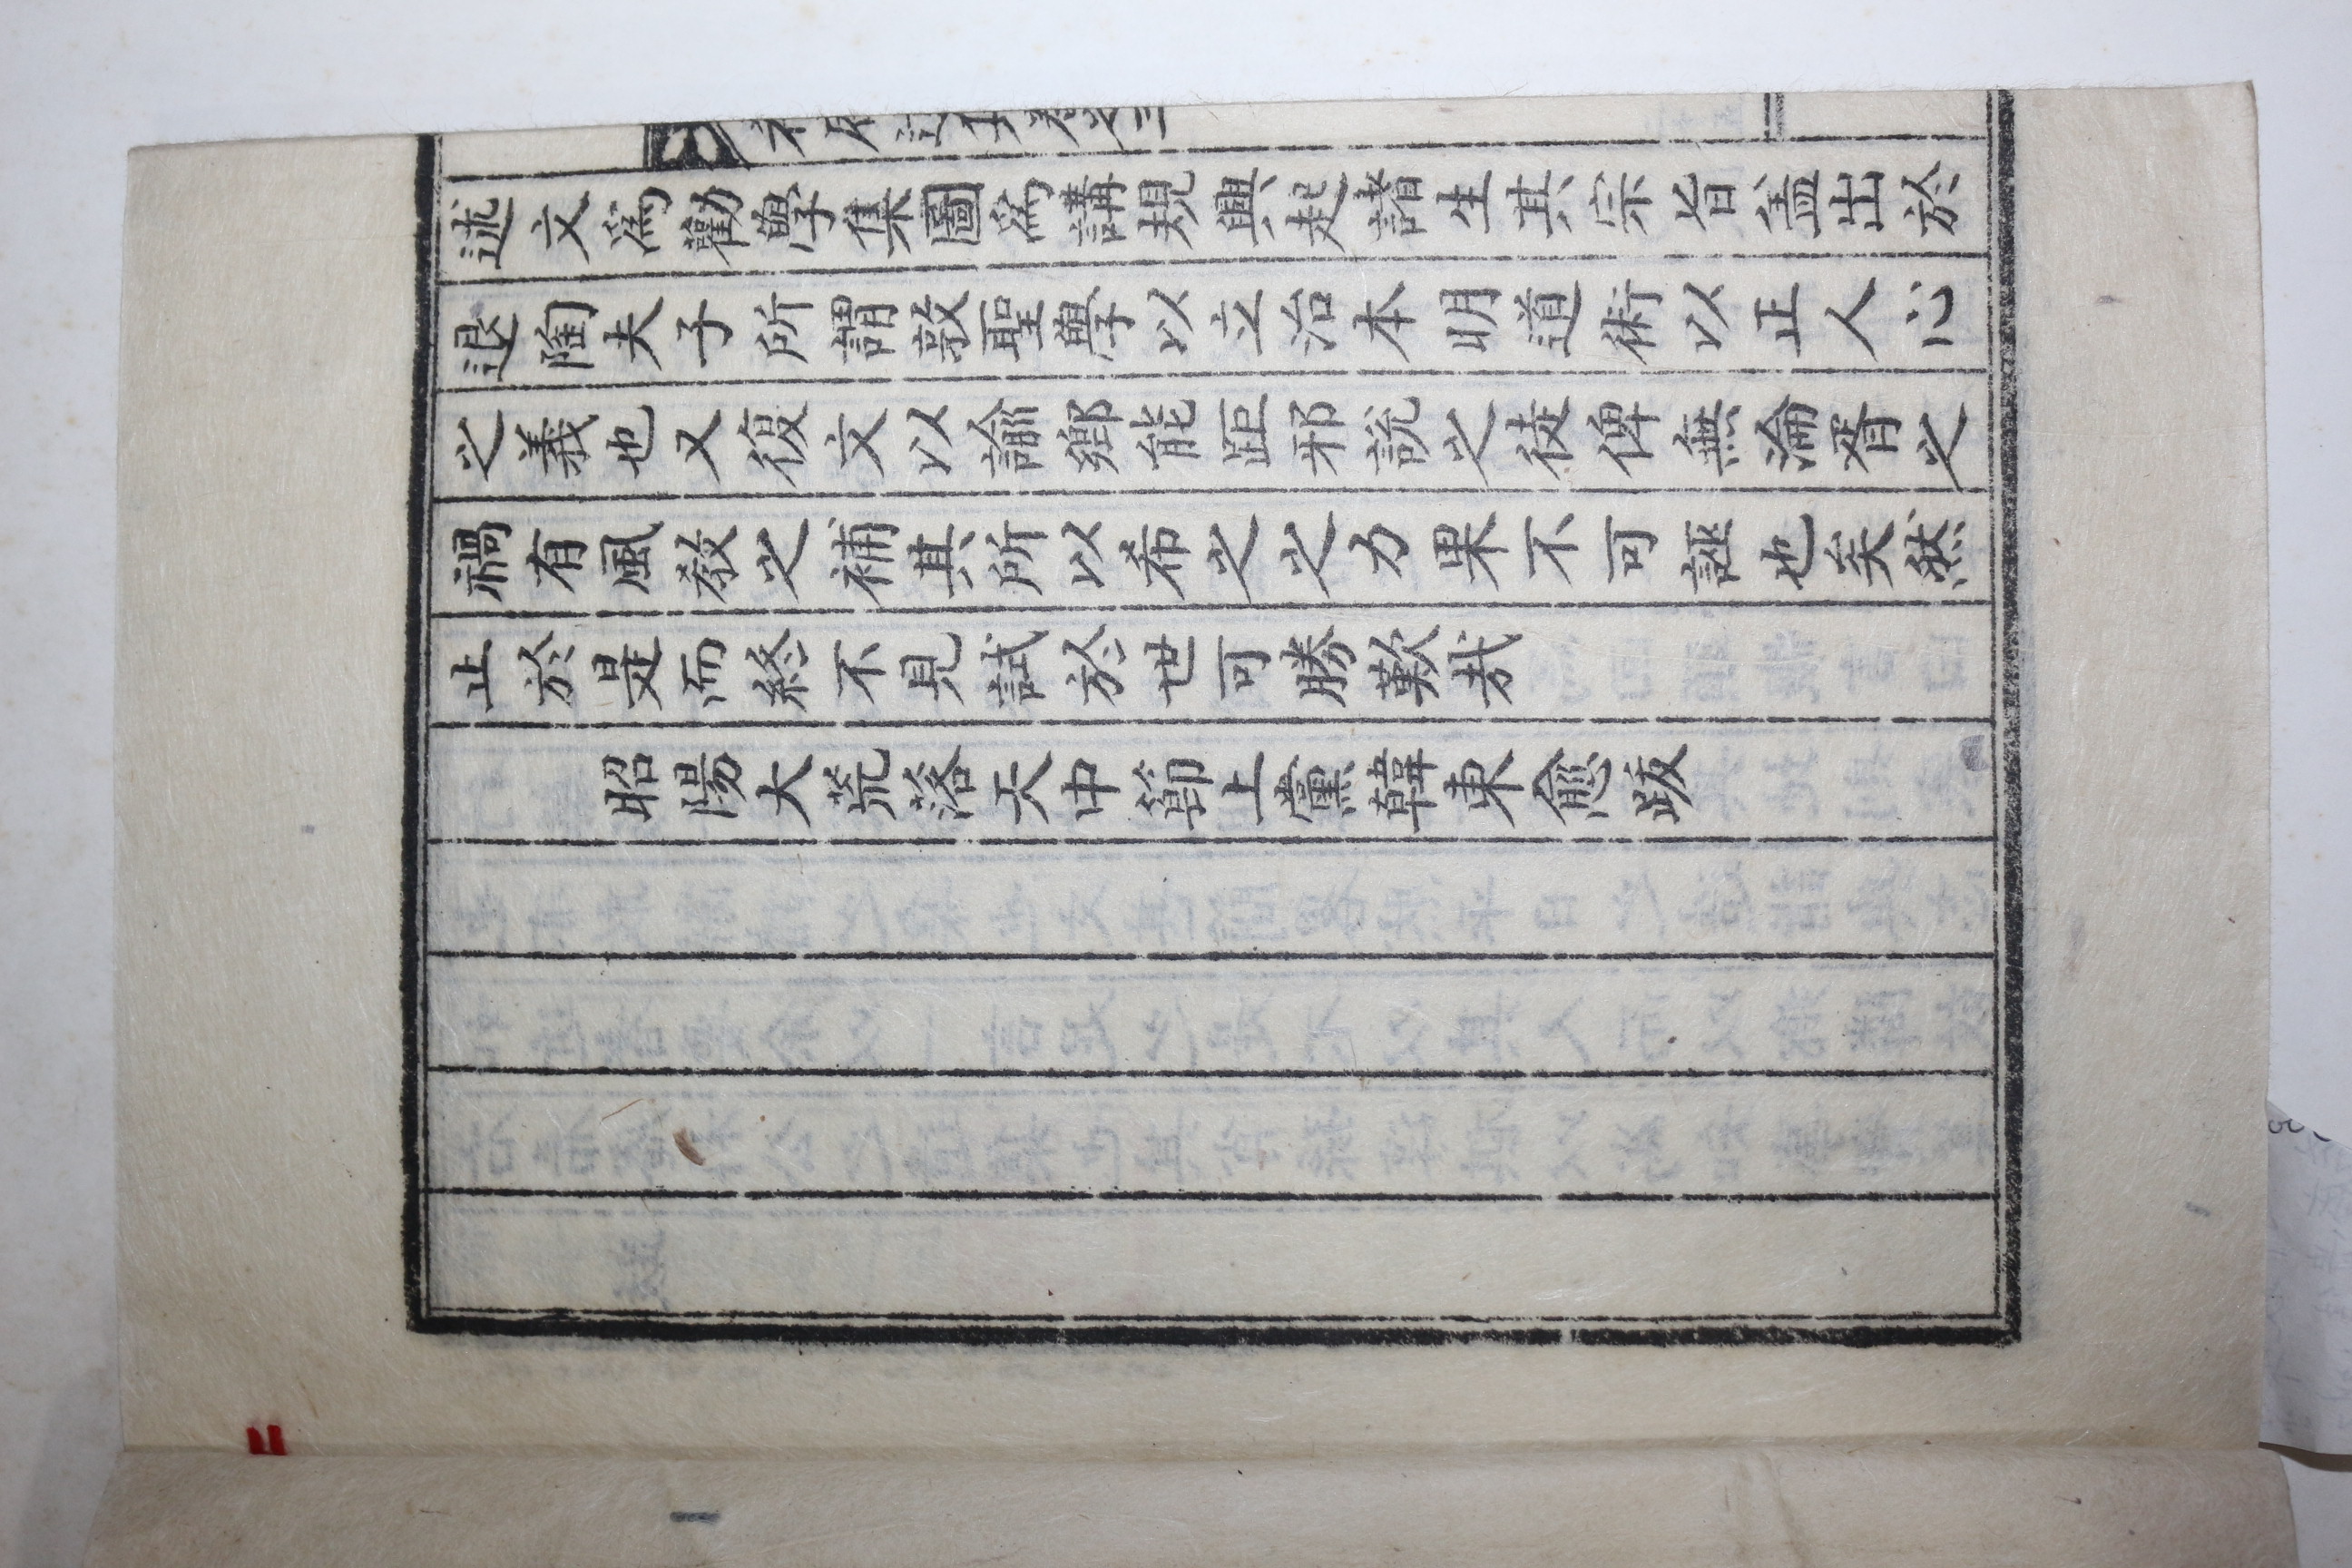 述文爲勸學集圖爲講規興起諸生其宗旨盖出於
退陶夫子所謂敦聖學以立治本明道術以正人心
之義也又復文以諭鄉能距邪說之徒俾無淪胥之
禍有風敎之補其所以希之之力果不可誣也矣然
止於是而終不見試於世可勝歎哉
昭陽大荒落天中節上黨韓東愈跋